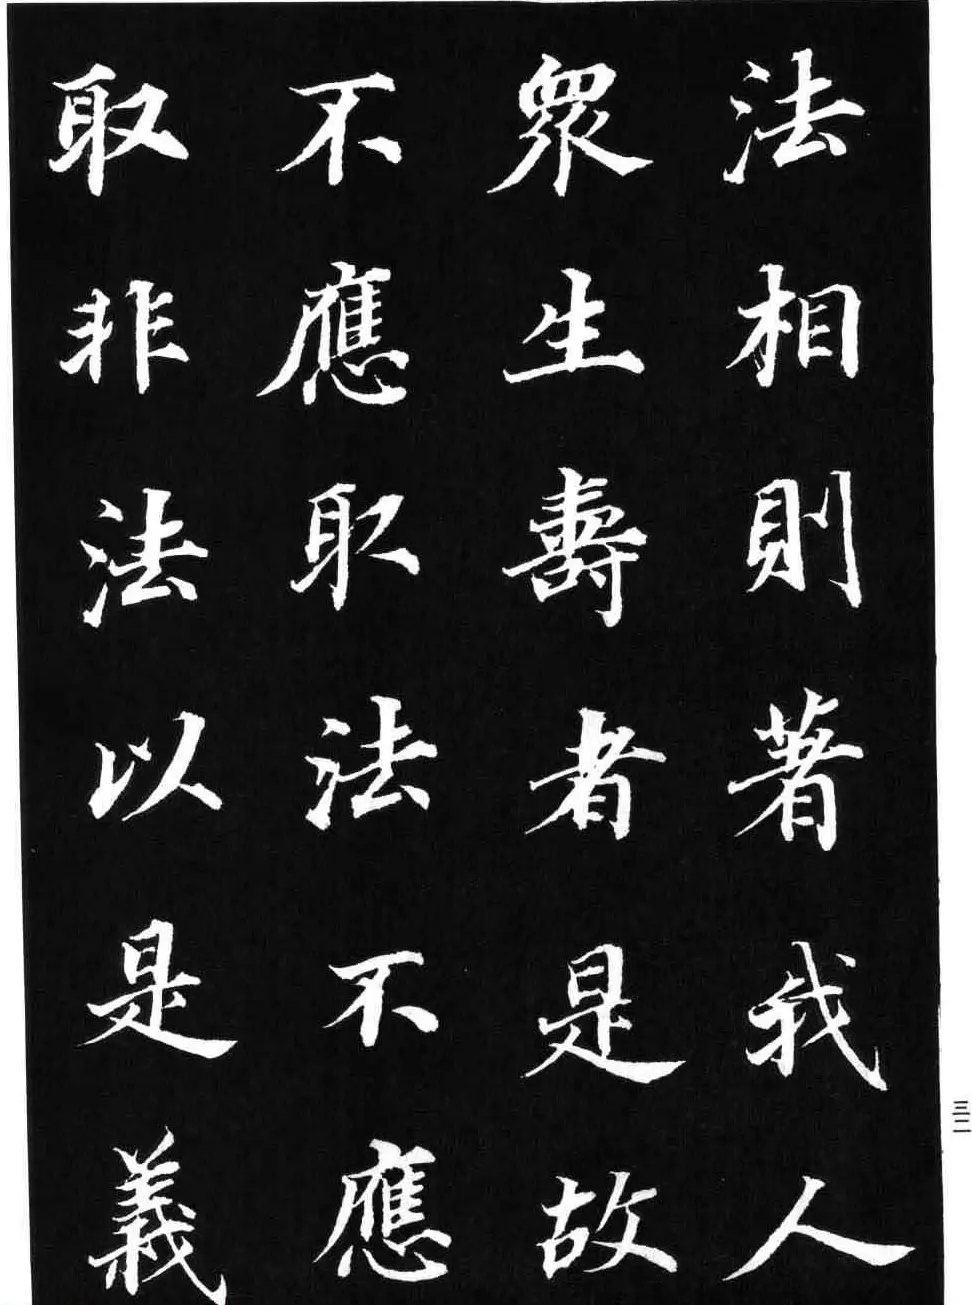 法相則著我人
衆生壽者是故
不應取法不應
取非法以是義
三二